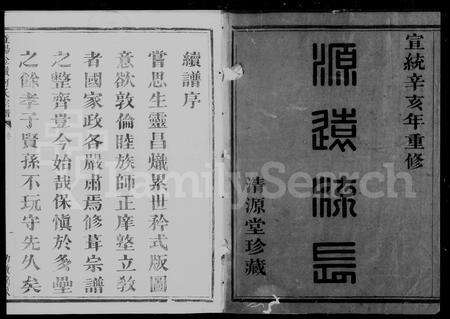 宣統辛亥年重修
源遠流長
清源堂珍藏
續譜序
嘗思生靈昌熾累世矜式版圖
意欲敦倫睦族師正庠整立教
者國家政各嚴肅焉修葺宗譜
之整齊貴今始哉保慎於
之餘孝子賢孫不玩守先久矣
FamilySearch